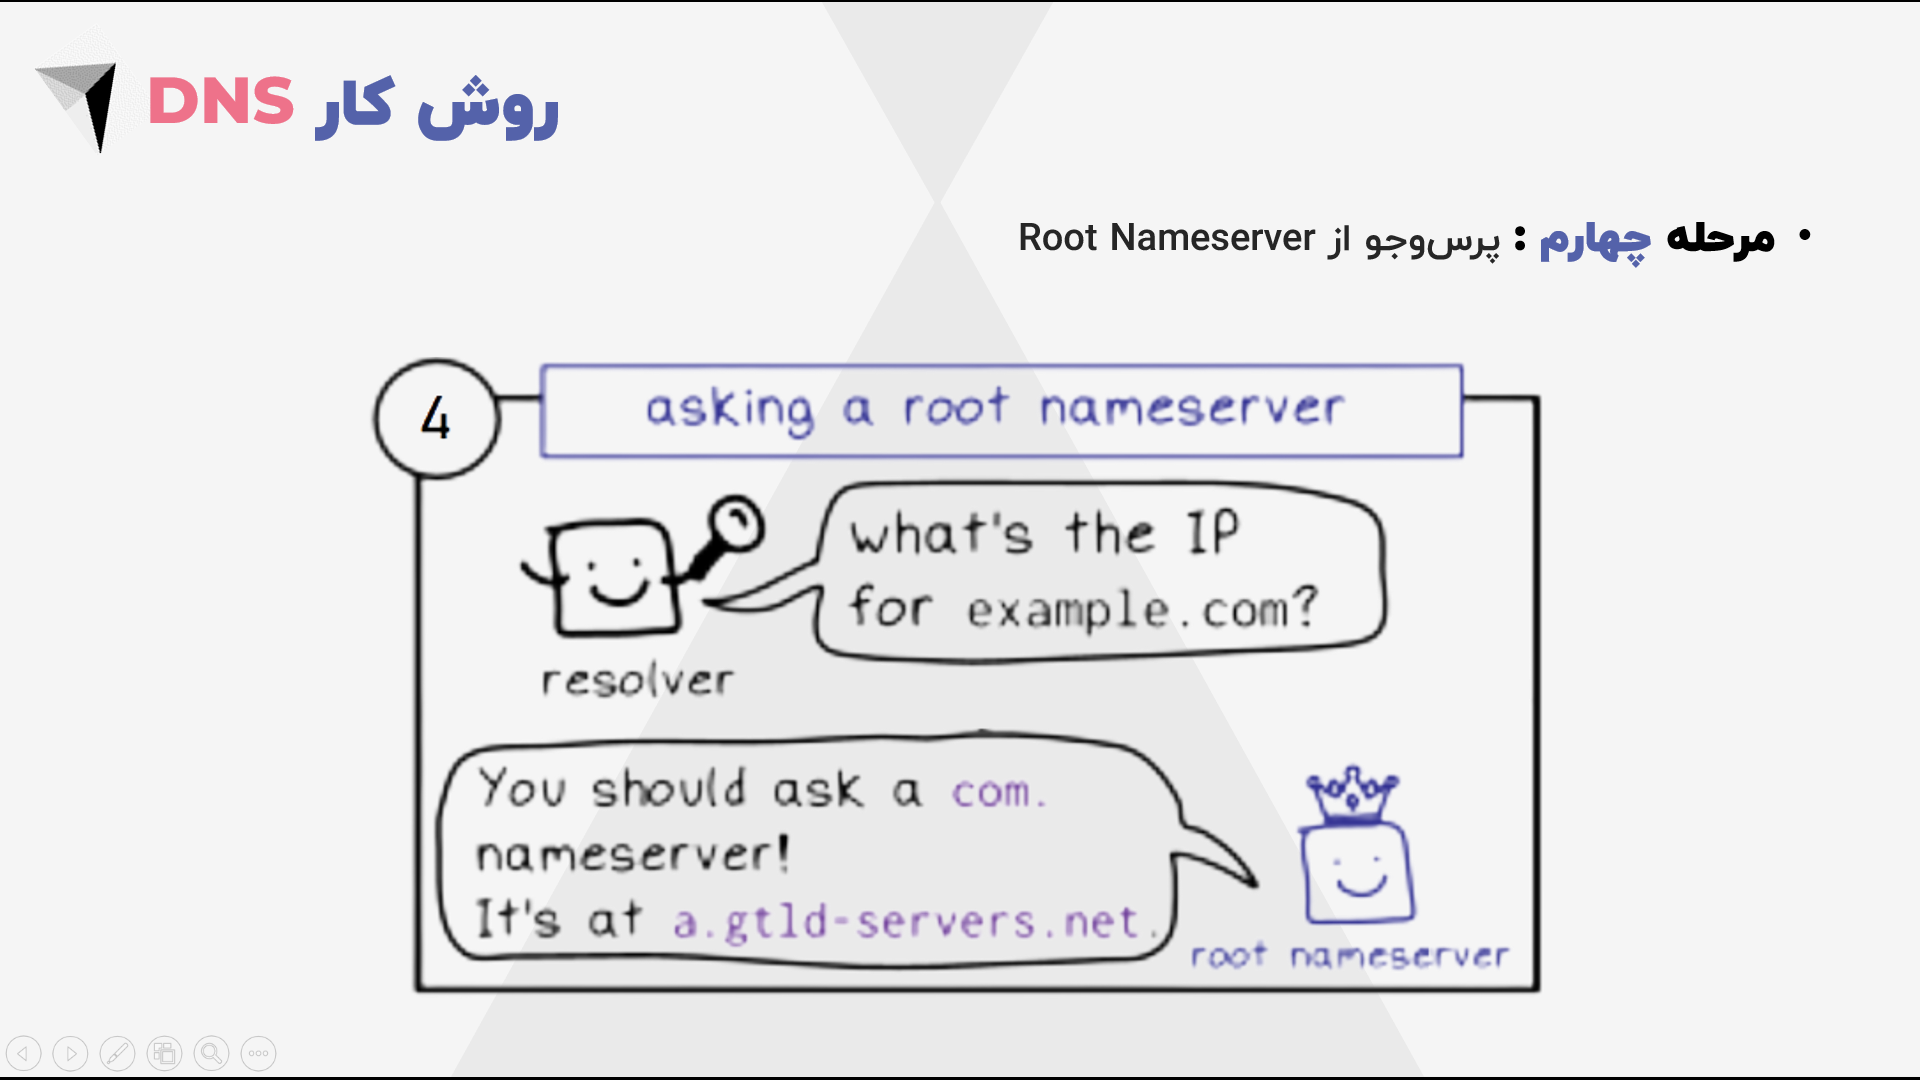 روش کار DNS
• مرحله چهارم : پرس‌وجو از Root Nameserver
4
asking a root nameserver
what's the IP
for example.com?
resolver
You should ask a com.
nameserver!
It's at a.gtld-servers.net.
root nameserver